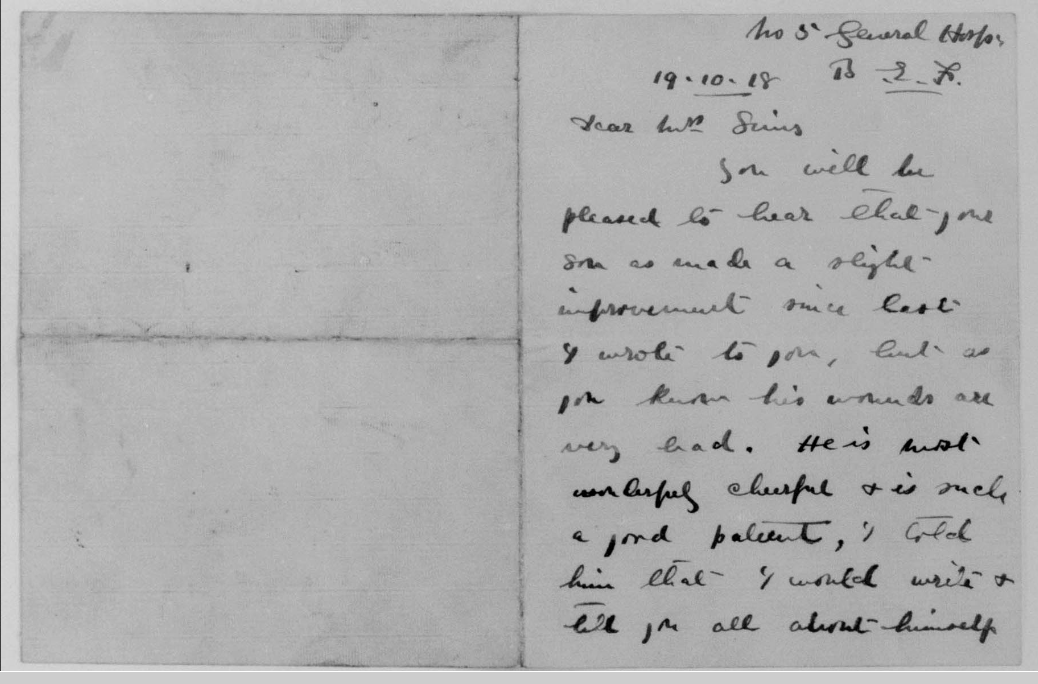 No 5 General Hosp.
19.10.18 B.E.F.
Dear Mrs Sims
You will be
pleased to hear that your
son as made a slight
improvement since last
I wrote to you, but as
you know his wounds are
very bad. He is most
wonderfuly cheerful & is such
a good patient, I told
him that I would write &
tell you all about himself